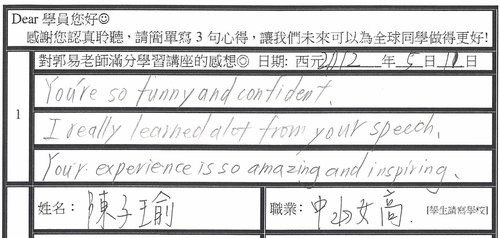 Dear 學員您好☺
感謝您認真聆聽，請簡單寫 3 句心得，讓我們未來可以為全球同學做得更好!
對郭易老師滿分學習講座的感想◎ 日期: 西元2012 年 5 日 10 日
1
You're so funny and confident.
I really learned alot from your speech.
Your experience is so amazing and inspiring.
姓名： 陳子瑜 職業： 中山女高 [學生請寫學校]